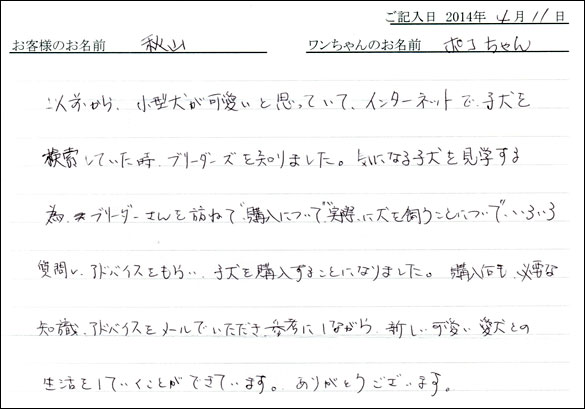 ご記入日 2014年 4月 11日
お客様のお名前 秋山 ワンちゃんのお名前 ポコちゃん
以前から、小型犬が可愛いと思っていて、インターネットで子犬を
検索していた時、ブリーダーズを知りました。気になる子犬を見学する
為、ブリーダーさんを訪ねて、購入について、実際に犬を飼うことについて、いろいろ
質問し、アドバイスをもらい、子犬を購入することになりました。購入後も、必要な
知識、アドバイスをメールでいただき、参考にしながら、新しい可愛い愛犬との
生活をしていくことができています。ありがとうございます。